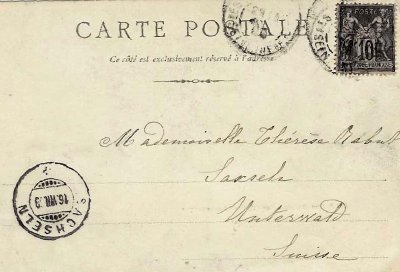 CARTE POSTALE
Ce côté est exclusivement réservé à l'adresse
10
Mademoiselle Thérèse
Saxeln
Unterwald
Suisse
SACHSELN
16.VIII.